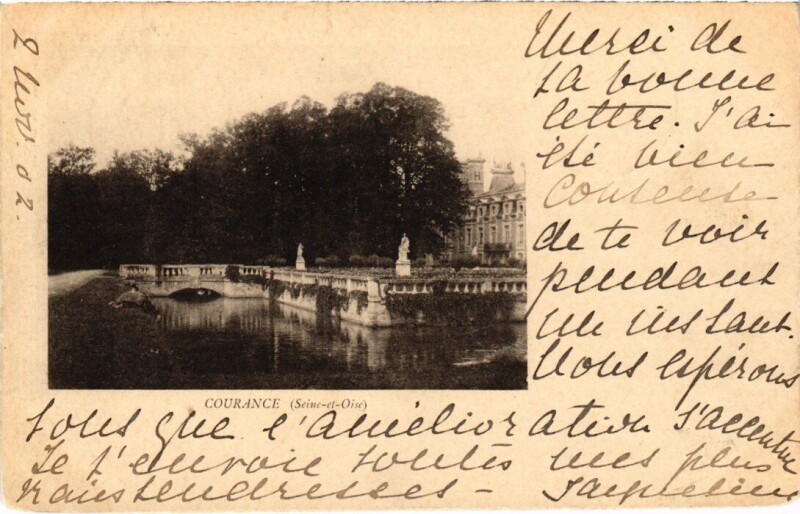 2 Nov. 02.
Merci de
ta bonne
lettre. J'ai
été bien
contente
de te voir
pendant
un instant.
Nous espérons
COURANCE (Seine-et-Oise)
tous que l'amélioration s'accentue
Je t'envoie toutes mes plus
tendresses - Jacqueline